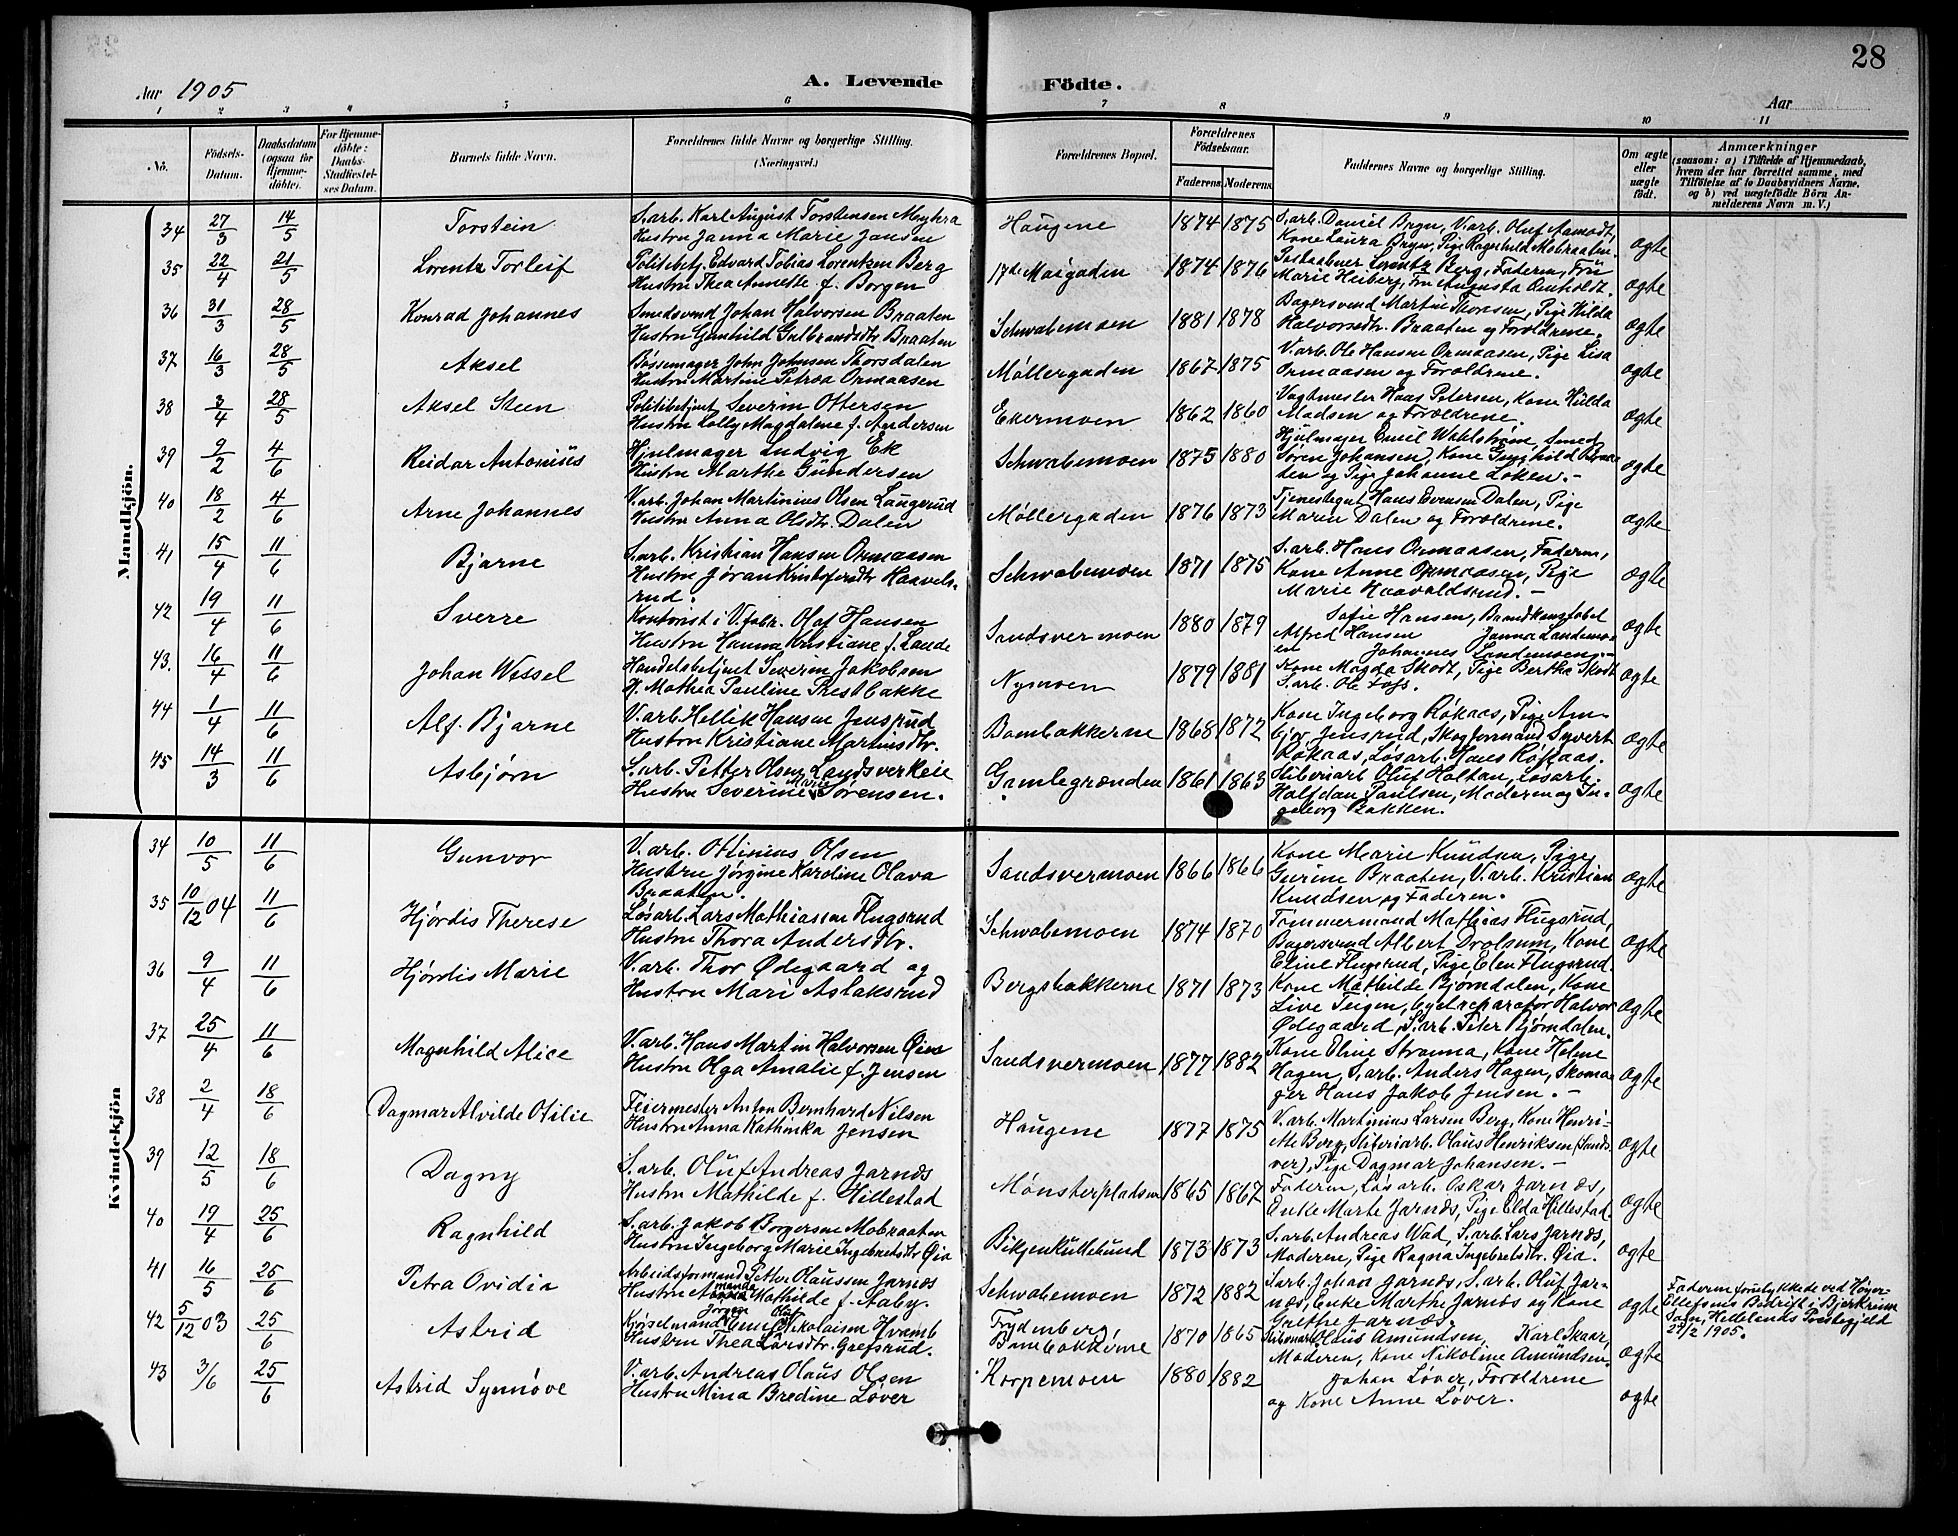 28
Aar 1905
A. Levende Födte.
Aar
1 2 3 4 5 6 7 8 9 10 11
No.
Födsels-Datum.
Daabsdatum (ogsaa for Hjemme-döbte).
For Hjemme-döbte: Daabs-Stadfæstel-ses Datum.
Barnets fulde Navn.
Forældrenes fulde Navne og borgerlige Stilling. (Næringsvei.)
Forældrenes Bopæl.
Forældrenes Födselsaar.
Faderens Moderens
Faddernes Navne og borgerlige Stilling.
Om ægte eller uægte födt.
Anmærkninger
(saasom: a) i Tilfælde af Hjemmedaab, hvem der har forrettet samme, med Tilföielse af to Daabsvidners Navne, og b) ved uægtefödte Börn An-melderens Navn m. V.)
Mandkjön.
34 27/3 14/5 Torstein S.arb. Karl August Torstensen Myhra Haugene 1874 1875 S.arb. Daniel Bryn, V.arb. Oluf Aamodt, ægte
Hustru Janna Marie Jansen Kone Laura Bryn, Pige Ragnhild Mobraaten.
35 22/4 21/5 Lorentz Torleif Politibetj. Edvard Tobias Lorentzen Berg 17de Maigaden 1874 1876 Lorentz Berg, Faderen, Fru ægte
Hustru Thea Annette f. Borgen Marie Heiberg, Fru Augusta
36 31/3 28/5 Konrad Johannes Smedsvend Johan Halvorsen Braaten Schwabemoen 1881 1878 Bagersvend Martin Thoresen, Pige Hilda ægte
Hustru Gunhild Gulbrandsdtr. Braaten Halvorsdtr. Braaten og Forældrene.
37 16/3 28/5 Aksel Bössemager John Johnsen Thorsdalen Møllergaden 1867 1875 V.arb. Ole Hansen Ormaasen, Pige Lisa ægte
Hustru Martine Petrea Ormaasen Ormaasen og Forældrene.
38 3/4 28/5 Aksel Steen Politibetjent Severin Ottersen Ekermoen 1862 1860 Vagtmester Hans Petersen, Kone Hulda ægte
Hustru Lolly Magdalene f. Andersen Madsen og Forældrene.
39 9/2 4/6 Reidar Antonius Hjulmager Ludvig Ek Schwabemoen 1875 1880 Hjulmager Emil Wahlström, Smed ægte
Hustru Marthe Gundersen Sören Johansen, Kone Gunhild
og Pige Johanne Løken. -
40 18/2 4/6 Arne Johannes V.arb. Johan Martinius Olsen Langerud Møllergaden 1876 1873 Tjenestegut Hans Evensen Dalen, Pige ægte
Hustru Anna Olsdtr. Dalen Maren Dalen og Forældrene.
41 15/4 11/6 Bjarne S.arb. Kristian Hansen Ormaasen Schwabemoen 1871 1875 S.arb. Hans Ormaasen, Faderen, ægte
Hustru Jøran Kristofersdtr. Haavels- Kone Anne Ormaasen, Pige
rud. Marie Haavoldsrud. -
42 19/4 11/6 Sverre Kontorist i V.fabr. Olaf Hansen Sandsvermoen 1880 1879 Sofie Hansen, Brandkonstabel ægte
Hustru Hanna Kristiane f. Lande Alfred Hansen Janna Landemo-
en Johannes Landemoen. -
43. 16/4 11/6 Johan Wessel Handelsbetjent Severin Jakobsen Nymoen 1879 1881 Kone Magda Skodt, Pige Bertha Skodt ægte
H. Mathea Pauline Prestbakke S.arb. Ole Foss.
44 1/4 11/6 Alf. Bjarne V.arb. Hellik Hansen Jensrud Bambakkerne 1868 1872 Kone Ingeborg Røkaas, Pige Am- ægte
Hustru Kristiane Martinsdtr. bjør Jensrud, Skogformand Syvert
Røkaas, Løsarb. Hans Røkaas.
45 14/3 11/6 Asbjørn S.arb. Petter Olsen Landsverkeie Gamlegrænden 1861 1863 Stiberiarb. Oluf Holtan, Løsarb. ægte
Hustru Severine Marie Sørensen. Halfdan Paulsen, Moderen og In-
geborg Bakken.
Kvindekjön
34 10/5 11/6 Gunvor V.arb. Ottinius Olsen Sandsvermoen 1866 1866 Kone Marie Knudsen, Pige ægte
Hustru Jørgine Karoline Olava Gurine Braaten, V.arb. Kristian
Braaten. Knudsen og Faderen.
35 10/12 04 11/6 Hjørdis Therese Løsarb. Lars Mathiassen Flugsrud Schwabemoen 1874 1870 Tømmermand Mathias Flugsrud, ægte
Hustru Thora Andersdtr. Bagersvend Albert Drolsum, Kone
Eline Flugsrud, Pige Elen Flugsrud.
36 9/4 11/6 Hjørdis Marie V.arb. Thor Ødegaard og Bergsbakkerne 1871 1873 Kone Mathilde Bjørndalen, Kone ægte
Hustru Mari Aslaksrud Live Teigen, Cyclereparatør Halvor
Ødegaard, S.arb. Peter Bjørndalen.
37 25/4 11/6 Magnhild Alice V.arb. Hans Martin Halvorsen Øien Sandsvermoen 1877 1882 Kone Eline Stramna, Kone Helene ægte
Hustru Olga Amalie f. Jensen Hagen, S.arb. Anders Hagen, Skoma-
ger Hans Jakob Jensen. -
38 2/4 18/6 Dagmar Alvilde Otilie Feiermester Anton Bernhard Nilsen Haugene 1877 1875 V.arb. Martinius Larsen Berg, Kone Henri- ægte
Hustru Anna Kathinka Jensen Berg, Stiberiarb. Olaus Henriksen (Sands-
ver), Pige Dagmar Johansen. -
39 12/5 18/6 Dagny S.arb. Oluf Andreas Jarnæs Mønsterpladsen 1865 1867 Faderen, Løsarb. Oskar Jarnæs, ægte
Hustru Mathilde f. Hillestad Enke Marte Jarnæs, Pige Elda Hillestad
40 19/4 25/6 Ragnhild S.arb. Jakob Borgersen Mobraaten 1873 1873 S.arb. Andreas Wad, S.arb. Lars Jarnæs, ægte
Hustru Ingeborg Marie Ingebretsdtr. Øia Moderen, Pige Ragna Ingebretsdtr. Øia.
41 16/5 25/6 Petra Ovidia Arbeidsformand Petter Olaussen Jarnæs Schwabemoen 1872 1882 S.arb. Johan Jarnæs, S.arb. Oluf Jar- ægte
Hustru Amanda Mathilde f. Aaby. næs, Enke Marthe Jarnæs og Kone
Grethe Jarnæs.
Faderen forulykkede ved Høyer-
Ellefsens Bedrift i Bjerkreim
Sogn, Hellelands Prestegjeld
27/2 1905.
42 5/12 03 25/6 Astrid Kjørselmand Jörgen Oluf Nikolaisen Hvamb Frydenberg, 1870 1865 Olaus Amundsen, Karl Skaar, ægte
Hustru Thea Larsdtr. Grefsrud. Bambakkerne Moderen, Kone Nikoline Amundsen
43 3/6 25/6 Astrid Synnøve V.arb. Andreas Olaus Olsen Korpemoen 1880 1882 Johan Løver, Forældrene ægte
Hustru Mina Bredine Løver og Kone Anne Løver.